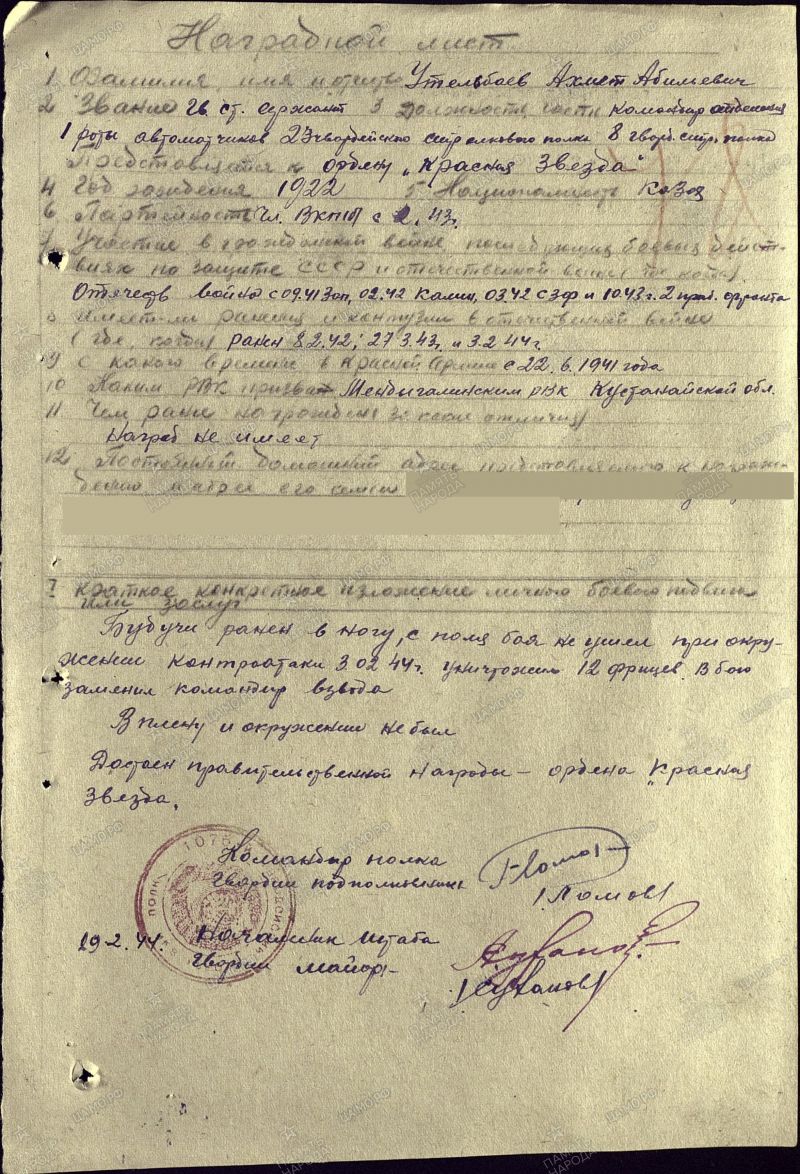 Наградной лист
1 Фамилия, имя и отчество Утельбаев Ахмет Абильевич
2 Звание гв. ст. сержант 3 Должность, часть командир отделения
1 роты автоматчиков 23 гвардейского стрелкового полка 8 гвард. стр.
Представляется к ордену „Красная Звезда"
4 Год рождения 1922 5 Национальность Казах
6 Партийность Чл. ВКП(б) с 2.43г.
7 Участие в гражданской войне, последующих боевых дейст-
виях по защите СССР и отечественной войне (где, когда)
Отечеств война с 09.41 Зап, 02.42 Калин, 03.42 СЗФ и 10.43 г. 2 приб. фронта
8 Имеет-ли ранения и контузии в отечественной войне
(где, когда) ранен 8.2.42; 27.3.43, и 3.2.44г.
9 С какого времени в Красной Армии с 22.6.1941 года
10 Каким РВК призван Мендыгалинским РВК Кустанайской обл.
11 Чем ранее награжден за какие отличия
Наград не имеет
12 Постоянный домашний адрес представляемого к награж-
дению и адрес его семьи
I Краткое конкретное изложение личного боевого подвига
или заслуг
Будучи ранен в ногу, с поля боя не ушел при окру-
жении контратаки 3.02.44г. уничтожил 12 фрицев. В бою
заменил командир взвода
В плену и окружении не был
Достоен правительственной Награды – ордена „Красная
Звезда.
Командир полка
Гвардии подполковник
/Ломов/
29.2.44г. Начальник штаба
Гвардии майор –